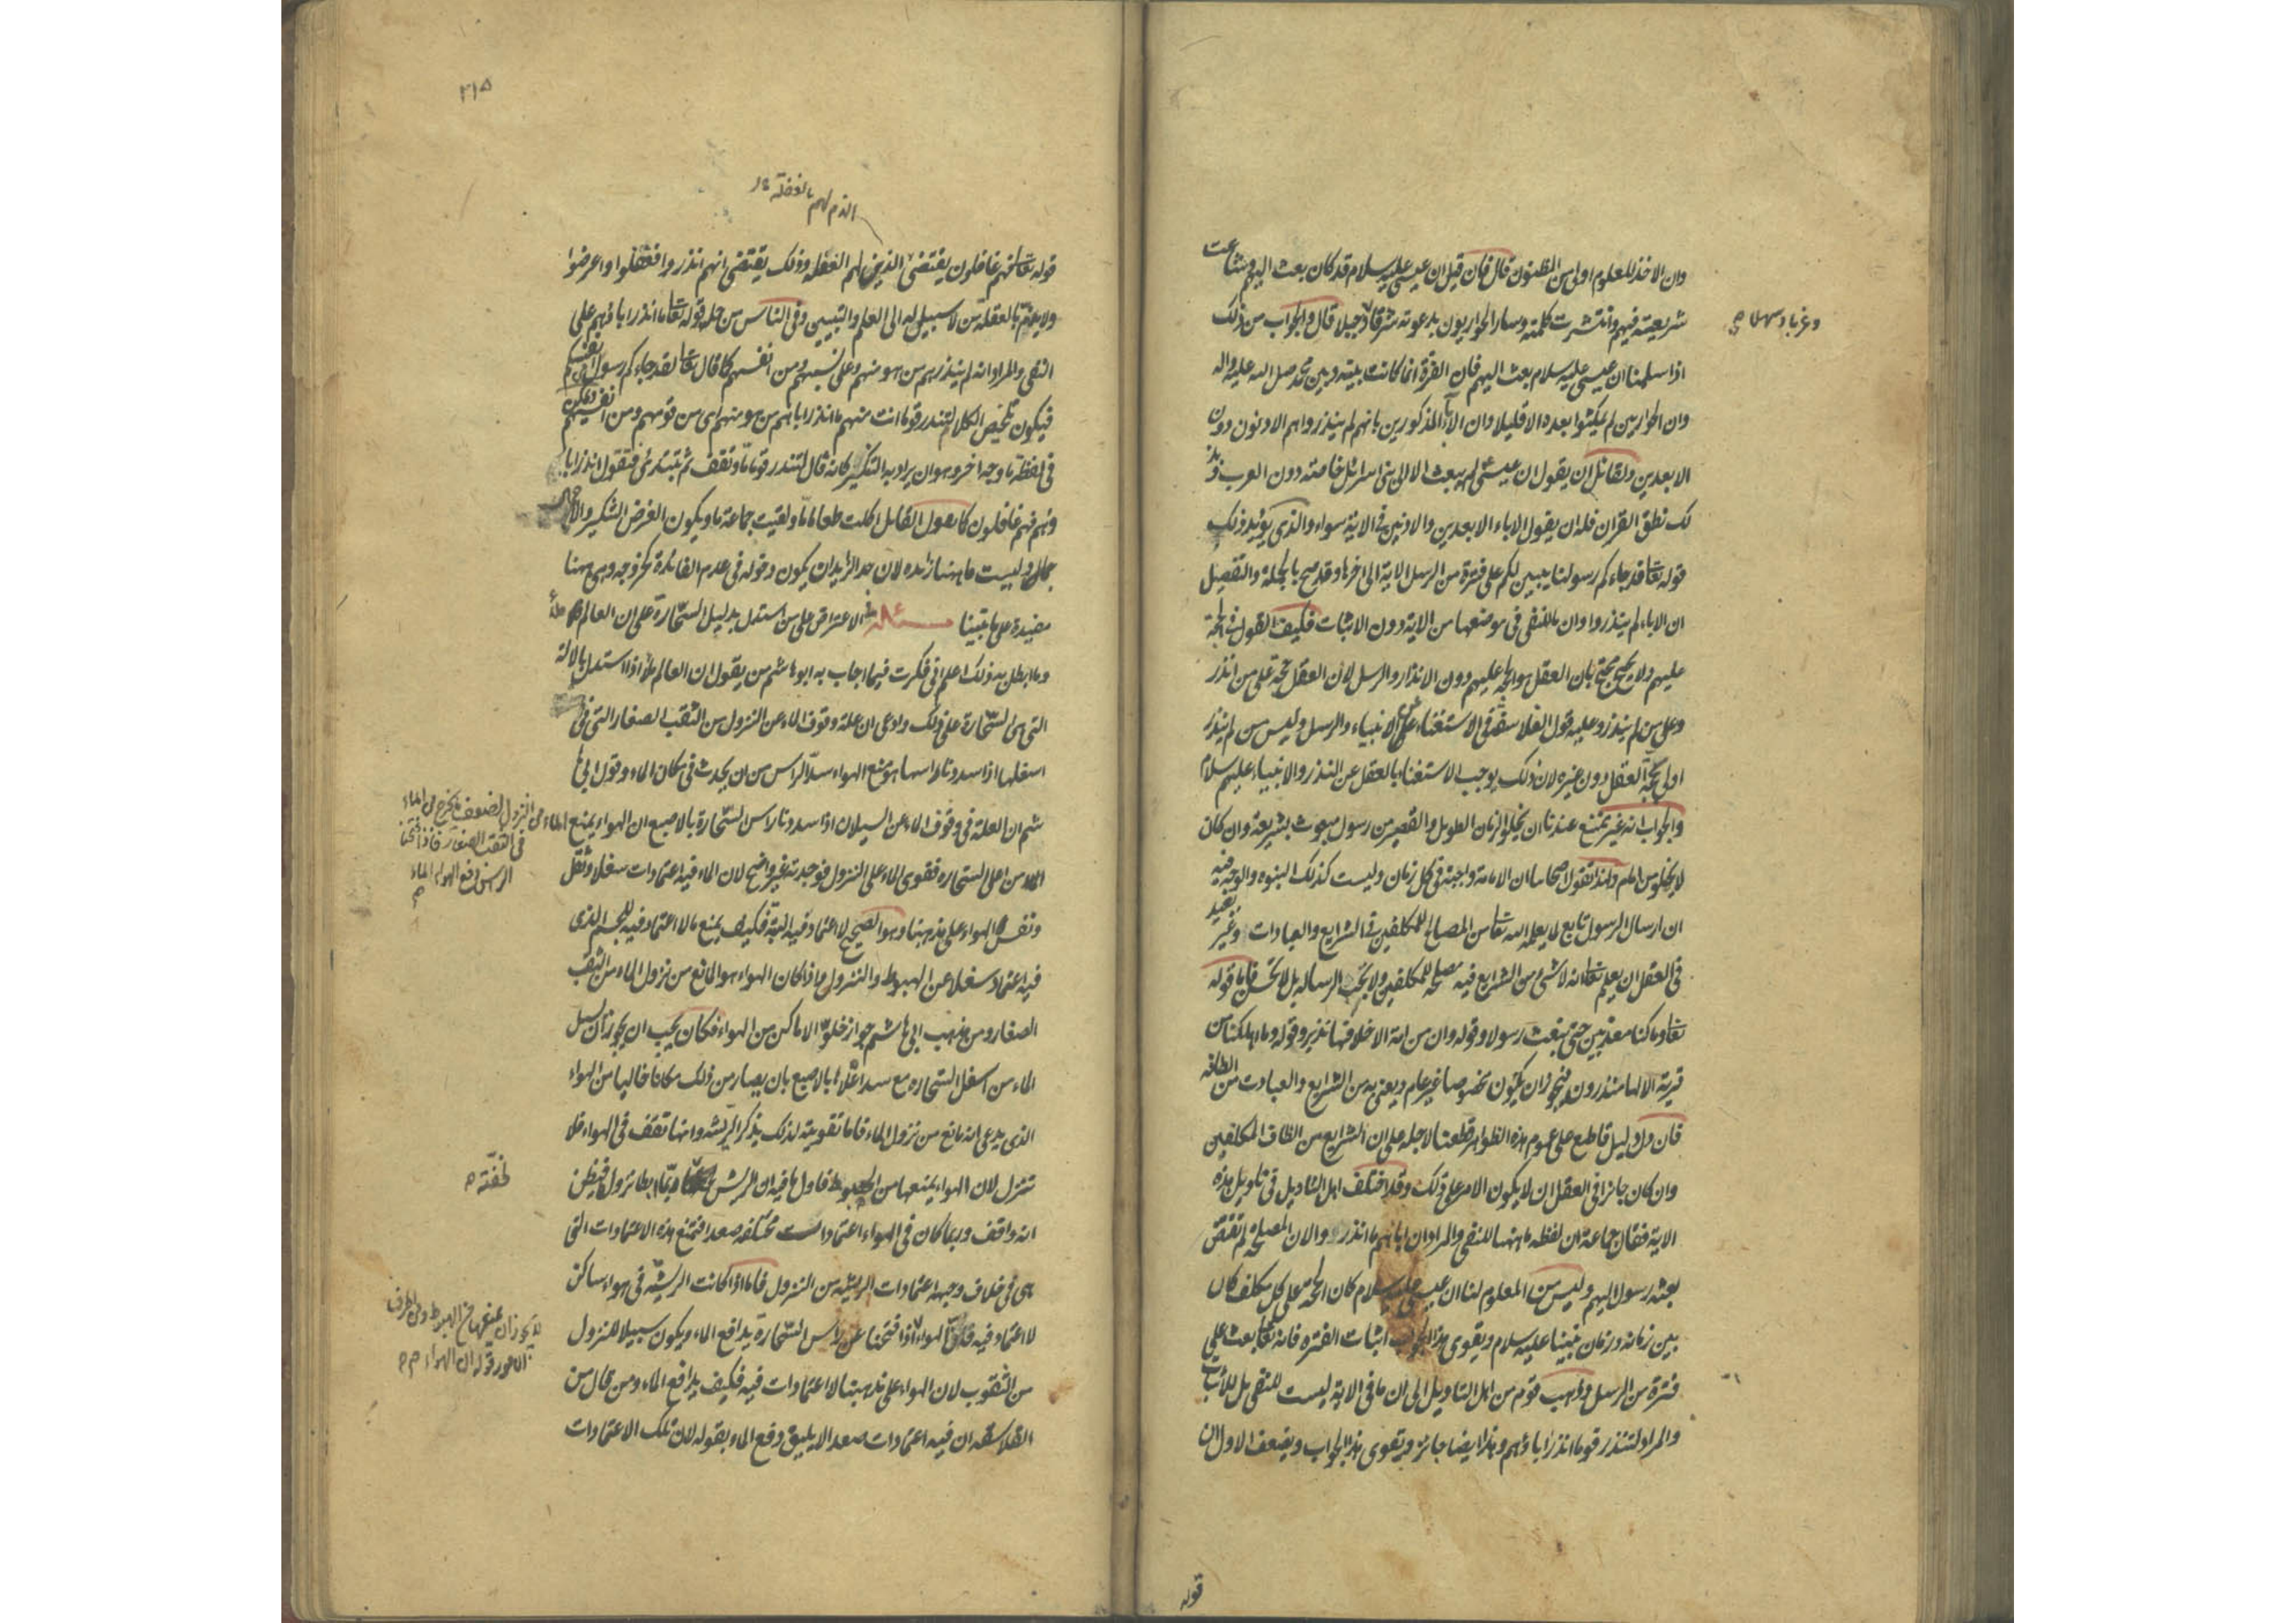 دون الاخذ للمعلوم اولى من المظنون قال فان قيل ان عيسى عليه سلام قد كان بعث اليهم وشاعت
شريعته فيهم وانتشرت كلمته وسار الحواريون بدعوته شرقا وجبلا قال والجواب من ذلك
وغربا وسهلا
اذا سلمنا ان عيسى عليه سلام بعث اليهم فان الفترة انما كانت بينه وبين محمد صلى الله عليه واله
وان الحواريين لم يمكثوا بعده الا قليلا وان الاباء المذكورين بانهم لم ينذروا هم الادنون دون
الابعدين ولقائل ان يقول ان عيسى لم يبعث الا الى بنى اسرائل خاصته دون العرب وبذ
لك نطق القران فله ان يقول الاباء الابعدين والادنين فى الاية سواء والذى يؤيد ذلك
قوله تعا قد جاءكم رسولنا يبين لكم على فترة من الرسل الاية الى اخرها وقد صح بالجملة والتفصيل
ان الاباء لم ينذروا وان ما للنفى فى موضعها من الاية دون الاثبات فكيف القول فى الحجة
عليهم ولا يحتج محتج بان العقل هو الحجة عليهم دون الانذار والرسل لان العقل حجة على من انذر
وعلى من لم ينذر وعليه قول الفلاسفة فى الاستغناء عن الانبياء والرسل وليس من لم ينذر
اولى بحجة العقل دون غيره لان ذلك يوجب الاستغناء بالعقل عن النذر والانبياء عليهم سلام
والجواب انه غير ممتنع عندنا ان يخلو الزمان الطويل والقصير من رسول مبعوث بشريعة وان كان
لا يخلو من امام ولهذا تقول اصحابنا ان الامامة واجبة فى كل زمان وليست كذلك النبوه والوجه فيه
ان ارسال الرسول تابع لما يعلمه الله تعا من المصالح للمكلفين فى الشرايع والعبادات وغير بعيد
فى العقل ان يعلم تعا انه لا شى من الشرايع فيه مصلحة للمكلفين ولا تجب الرساله بل لا تحسن فاما قوله
تعا وما كنا معذبين حتى نبعث رسولا وقوله وان من امة الا خلا فيها نذير وقوله وما اهلكنا من
قرية الا لها منذرون فيجوز ان يكون مخصوصا غير عام ويعنى به من الشرايع والعبادت من الطافه
فان دل دليل قاطع على عموم هذه الظواهر قطعنا لاجله على ان الشرايع من الطاف المكلفين
وان كان جائزا فى العقل ان لا يكون الامر على ذلك وقد اختلف اهل التاويل فى تاويل هذه
الاية فقال جماعة ان لفظه ما ههنا للنفى والمراد ان اباءهم ما انذروا لان المصلحة لم تقتض
بعثه رسول اليهم وليس من المعلوم لنا ان عيسى عليه سلام كان الحجة على كل مكلف كان
بين زمانه وزمان نبينا عليه سلام ويقوى هذا الجواب اثبات الفتره فانه تعا بعث على
فترة من الرسل وذهب قوم من اهل التاويل الى ان ما فى الاية ليست للنفى بل للاثبات
والمراد لتنذر قوما انذر اباؤهم وهذا ايضا جائز ويقوى هذا الجواب ويضعف الاول ان
قوله
٢١٥
الذم لهم بالغفلة
قوله تعا فهم غافلون يقتضى لهم الغفله وذلك يقتضى انهم انذروا فغفلوا واعرضوا
ولا يذم بالغفلة من لا سبيل له الى العلم والتبيين وفى الناس من حمل قوله تعا ما انذر اباؤهم على
النفى والمراد انه لم ينذرهم من هو منهم وعلى نسبهم ومن انفسهم كما قال تعا لقد جاءكم رسول من انفسكم
فيكون تلخيص الكلام لتنذر قوما انت منهم ما انذر اباءهم من هو منهم اى من قومهم ومن انفسهم ويمكن
فى لفظة ما وجه اخر وهو ان يراد به التنكير كانه قال لتنذر قوما ما وتقف ثم تبتدئ فتقول انذر ابا
ؤهم فهم غافلون كما يقول القايل اكلت طعاما ما ولقيت جماعة ما ويكون الغرض التنكير والا
جمال وليست ما ههنا زائده لان حد الزايد ان يكون دخوله فى عدم الفائدة كخروجه وهى ههنا
مفيدة على ما بينا مسئله الاعتراض على من استدل بدليل السحارة على ان العالم ملأ
وما ابطل به ذلك اعلم انى فكرت فيما اجاب به ابو هاشم من يقول ان العالم ملأ اذا استدل بالالة
التى هى السحارة على ذلك وادعى ان علة وقوف الماء عن النزول من الثقب الصغار التى فى
اسفلها اذا سددنا راسها هو منع الهواء سد الراس من ان يحدث فى مكان الماء وقول ابى ها
شم ان العلة فى وقوف الماء عن السيلان اذا سددنا راس السحارة بالاصبع ان الهواء يمنع الماء
من النزول لضعف ما يخرج من الماء
فى الثقب الصغار فاذا فتحنا
الراس دفع الهواء الماء
من اعلى السحاره فقوى الماء على النزول فوجدته غير واضح لان الماء فيه اعتمادات سفلا وثقل
ونفس الهواء على مذهبنا وهو الصحيح لا اعتماد فيه البتة فكيف يمنع ما لا اعتماد فيه للجسم الذى
فيه اعتماد سفلا عن الهبوط والنزول واذا كان الهواء هو المانع من نزول الماء من الثقب
الصغار ومن مذهب ابى هاشم جواز خلو الاماكن من الهواء فكان يجب ان يجوز ان يسيل
الماء من اسفل السحاره مع سد اعلاها بالاصبع بان يصادف من ذلك مكانا خاليا من الهواء
الذى يدعى انه مانع من نزول الماء فاما تقويته لذلك بذكر الريشه وانها تقف فى الهواء فلا
تنزل لان الهواء يمنعها من الهبوط فاول ما فيه ان الريش ربما ابطا نزولها فيظن
لخفته
انه واقف وربما كان فى الهواء اعتمادات مختلفه صعدا فتمنع هذه الاعتمادات التى
هى فى خلاف وجهه اعتمادات الريشه من النزول فاما اذا كانت الريشه فى هواء ساكن
لا اعتماد فيه
اذا فتحنا عن راس السحارة يدافع الماء ويكون سبيلا للنزول
من الثقوب لان الهواء على مذهبنا لا اعتمادات فيه فكيف يدافع الماء ومن قال من
الفلاسفه ان فيه اعتمادات صعدا لا يليق دفع الماء بقوله لان تلك الاعتمادات